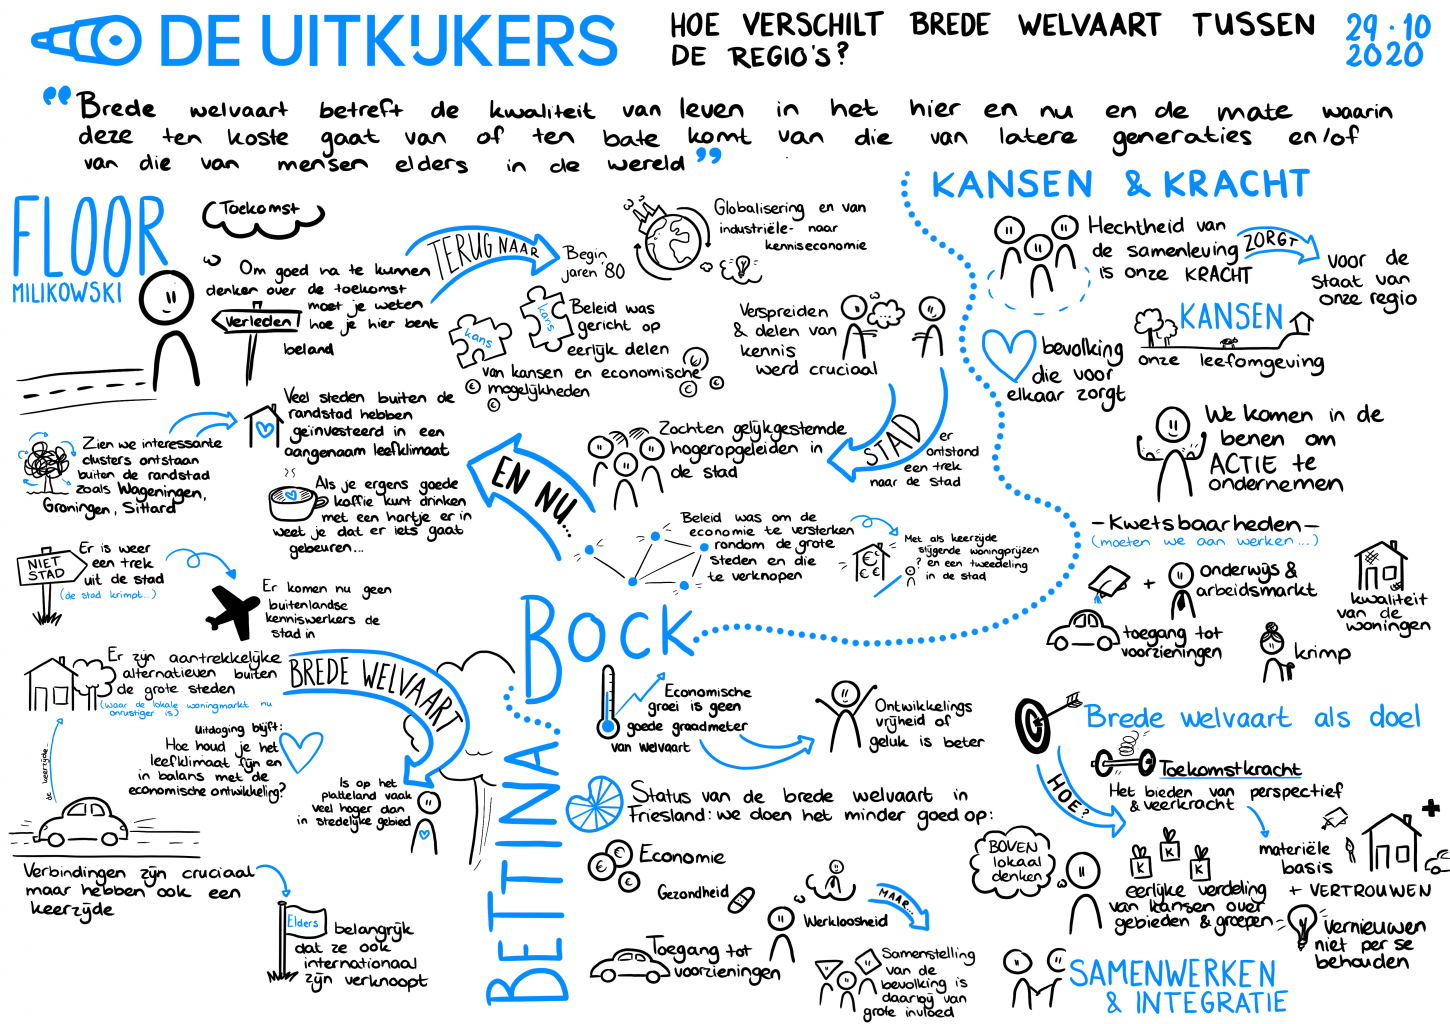 DE UITKIJKERS
HOE VERSCHILT BREDE WELVAART TUSSEN
DE REGIO'S?
29·10
2020
"Brede welvaart betreft de kwaliteit van leven in het hier en nu en de mate waarin
deze ten koste gaat van of ten bate komt van die van latere generaties en/of
van die van mensen elders in de wereld"
FLOOR
MILIKOWSKI
Toekomst
Om goed na te kunnen
denken over de toekomst
moet je weten
hoe je hier bent
beland
Verleden
TERUG NAAR
Begin
jaren '80
Globalisering en van
industriële- naar
kenniseconomie
kans
kans
Beleid was
gericht op
eerlijk delen
van kansen en economische
mogelijkheden
€
€
€
€
Verspreiden
& delen van
kennis
werd cruciaal
STAD
er
ontstond
een trek
naar de stad
Zochten gelijkgestemde
hogeropgeleiden in
de stad
Beleid was om de
economie te versterken
rondom de grote
steden en die
te verknopen
€ €
€ €
Met als keerzijde
stijgende woningprijzen
? en een tweedeling
in de stad
EN NU...
Veel steden buiten de
randstad hebben
geïnvesteerd in een
aangenaam leefklimaat
Zien we interessante
clusters ontstaan
buiten de randstad
zoals Wageningen,
Groningen, Sittard
Als je ergens goede
koffie kunt drinken
met een hartje er in
weet je dat er iets gaat
gebeuren...
NIET
STAD
Er is weer
een trek
uit de stad
(de stad krimpt...)
Er komen nu geen
buitenlandse
kenniswerkers de
stad in
Er zijn aantrekkelijke
alternatieven buiten
de grote steden
(waar de lokale woningmarkt nu
onrustiger is)
BREDE WELVAART
Uitdaging blijft:
Hoe houd je het
leefklimaat fijn en
in balans met de
economische ontwikkeling?
de keerzijde...
Is op het
platteland vaak
veel hoger dan
in stedelijke gebied
Verbindingen zijn cruciaal
maar hebben ook een
keerzijde
Elders
belangrijk
dat ze ook
internationaal
zijn verknoopt
BETTINA
BOCK
Economische
groei is geen
goede graadmeter
van welvaart
Ontwikkelings
vrijheid of
geluk is beter
Status van de brede welvaart in
Friesland: we doen het minder goed op:
€
€
€
Economie
Gezondheid
Werkloosheid
Toegang tot
voorzieningen
MAAR...
Samenstelling
van de
bevolking is
daarbij van
grote invloed
KANSEN & KRACHT
Hechtheid van
de samenleving
is onze KRACHT
ZORGT
voor de
staat van
onze regio
bevolking
die voor
elkaar zorgt
KANSEN
onze leefomgeving
We komen in de
benen om
ACTIE te
ondernemen
-Kwetsbaarheden-
(moeten we aan werken...)
+
onderwijs &
arbeidsmarkt
kwaliteit
van de
woningen
toegang tot
voorzieningen
krimp
Brede welvaart als doel
HOE?
Toekomstkracht
Het bieden van perspectief
& veerkracht
materiële
basis
+
+ VERTROUWEN
BOVEN
lokaal
denken
K
K
K
eerlijke verdeling
van kansen over
gebieden & groepen
Vernieuwen
niet per se
behouden
SAMENWERKEN
& INTEGRATIE